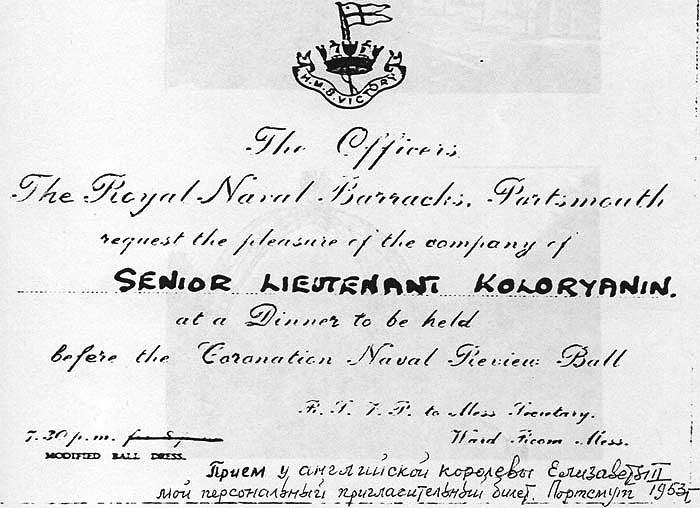 H.M.S. VICTORY
The Officers
The Royal Naval Barracks, Portsmouth
request the pleasure of the company of
SENIOR LIEUTENANT KOLORYANIN.
at a Dinner to be held
before the Coronation Naval Review Ball
R.S.V.P. to Mess Secretary.
7.30 p.m.
Ward Room Mess.
MODIFIED BALL DRESS.
Прием у английской королевы Елизаветы II
мой персональный пригласительный билет. Портсмут 1953г